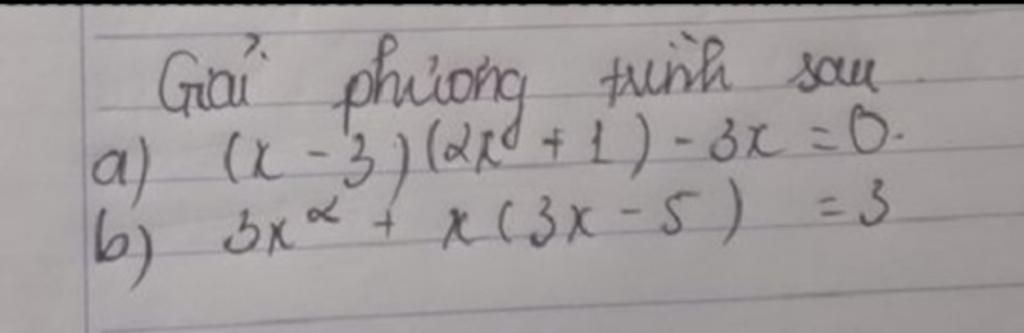 Giải phương trình sau
a) (x - 3)(2x + 1) - 3x = 0.
b) 3x² + x(3x - 5) = 3